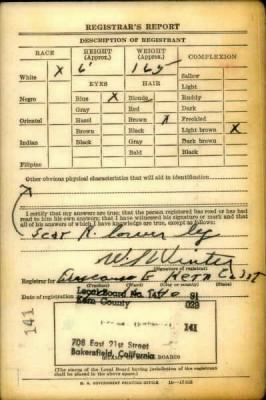 REGISTRAR'S REPORT
DESCRIPTION OF REGISTRANT
RACE HEIGHT (Approx.) WEIGHT (Approx.) COMPLEXION
White X 6' 165 Sallow
EYES HAIR Light
Negro Blue X Blonde Ruddy
Gray Red Dark
Oriental Hazel Brown X Freckled
Brown Black Light brown X
Indian Black Gray Dark brown
Bald Black
Filipino
Other obvious physical characteristics that will aid in identification
I certify that my answers are true; that the person registered has read or has had
read to him his own answers; that I have witnessed his signature or mark and that
all of his answers of which I have knowledge are true, except as follows:
Scar R. lower leg
(Signature of registrar)
Registrar for
Date of registration
Local Board No. 91
Kern County 029
141
141
708 East 21st Street
Bakersfield, California
(The stamp of the Local Board having jurisdiction of the registrant
shall be placed in the above space.)
U. S. GOVERNMENT PRINTING OFFICE